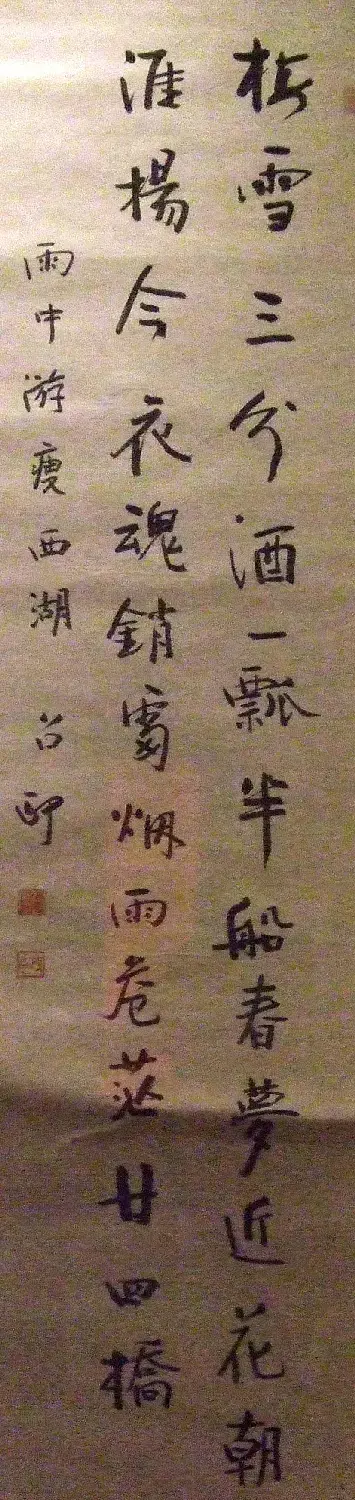 梅雪三分酒一瓢半船春夢近花朝
淮揚今夜魂銷處烟雨蒼茫廿四橋
雨中游瘦西湖